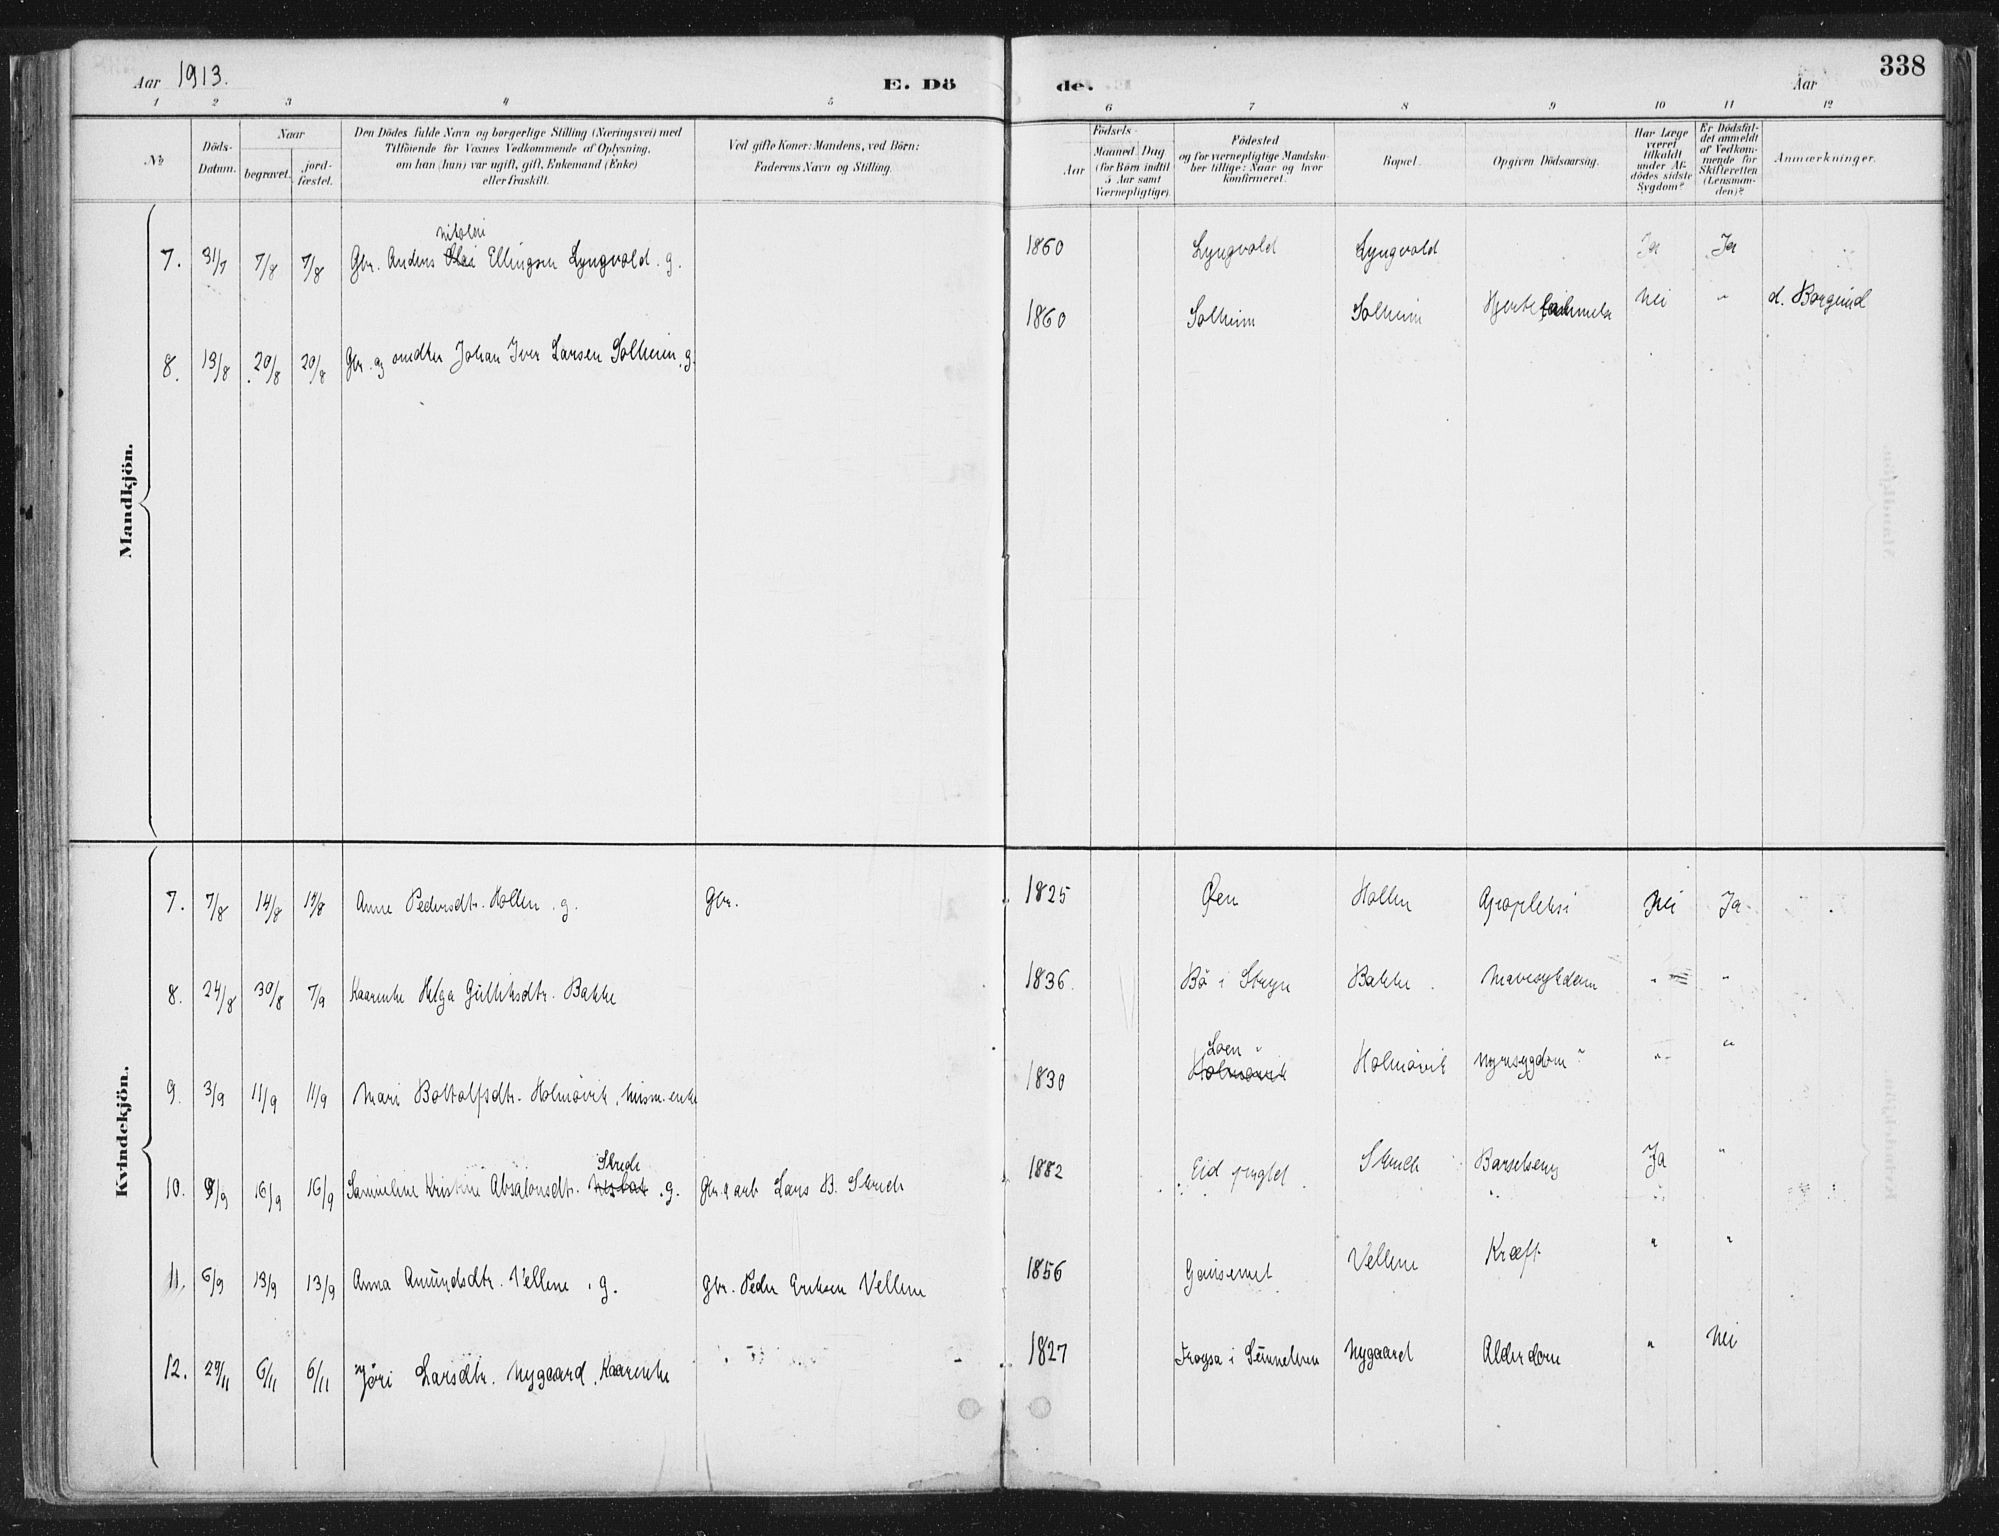 Aar 1913. E. Dö de. Aar 338
1 2 3 4 5 6 7 8 9 10 11 12
No
Döds-Datum.
Naar
begravet.
jord-fæstet.
Den Dödes fulde Navn og borgerlige Stilling (Næringsvei) med
Tilföiende for Voxnes Vedkommende af Oplysning,
om han (hun) var ugift, gift, Enkemand (Enke)
eller fraskilt.
Ved gifte Koner: Mandens, ved Börn:
Faderens Navn og Stilling.
Födsels-
Aar
Maaned Dag
(for Børn indtil
5 Aar samt
Værnepligtige).
Födested
og for værnepligtige Mandska-
ber tillige: Naar og hvor
konfirmeret.
Bopæl.
Opgiven Dödsaarsag.
Har Læge
været
tilkaldt
under Af-
dödes sidste
Sygdom?
Er Dödsfal-
det anmeldt
af Vedkom-
mende for
Skifteretten
(Lensman-
den)?
Anmærkninger.
Mandkjön.
Nikolai
7. 31/7 7/8 7/8 Gbr. Anders Ellingsen Lyngvold. g. 1860 Lyngvold Lyngvold Ja Ja
8. 13/8 20/8 20/8 Gbr. og Johan Iver Larsen Solheim. g. 1860 Solheim Solheim Nei " d. Borgund
Kvindekjön.
7. 7/8 14/8 14/8 Anne Pedersdtr. Hollen. g. Gbr. 1825 Øen Hollen Apopleksi Nei Ja
8. 24/8 30/8 7/9 Kaarenke Helga Gulliksdtr. Bakke 1836 Bö i Stryn Bakke Mavesykdom " "
Loen
9. 3/9 11/9 11/9 Mari Botolfsdtr. Holmövik, husm. enke 1830 Holmövik Holmövik Nyresygdom? " "
Skrede
10. 9/9 16/9 16/9 Sammeline Kristine Absalonsdtr. g. Gbr. & arb Lars B. Skrede 1882 Eid prgjld Skrede Barselseng Ja "
11. 6/9 13/9 13/9 Anna Amundsdtr. Vellene. g. Gbr. Peder Eriksen Vellene 1856 Gausemel Vellene Kræft " "
12. 29/11 6/11 6/11 Jöri Larsdtr. Nygaard. Kaarenke 1827 i Sunnelven Nygaard Alderdom " Nei